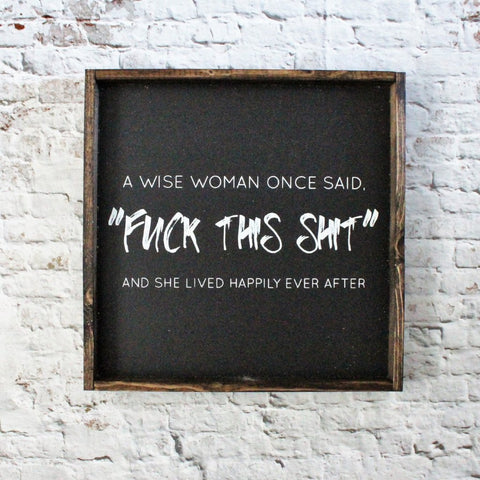 A WISE WOMAN ONCE SAID,
"FUCK THIS SHIT"
AND SHE LIVED HAPPILY EVER AFTER